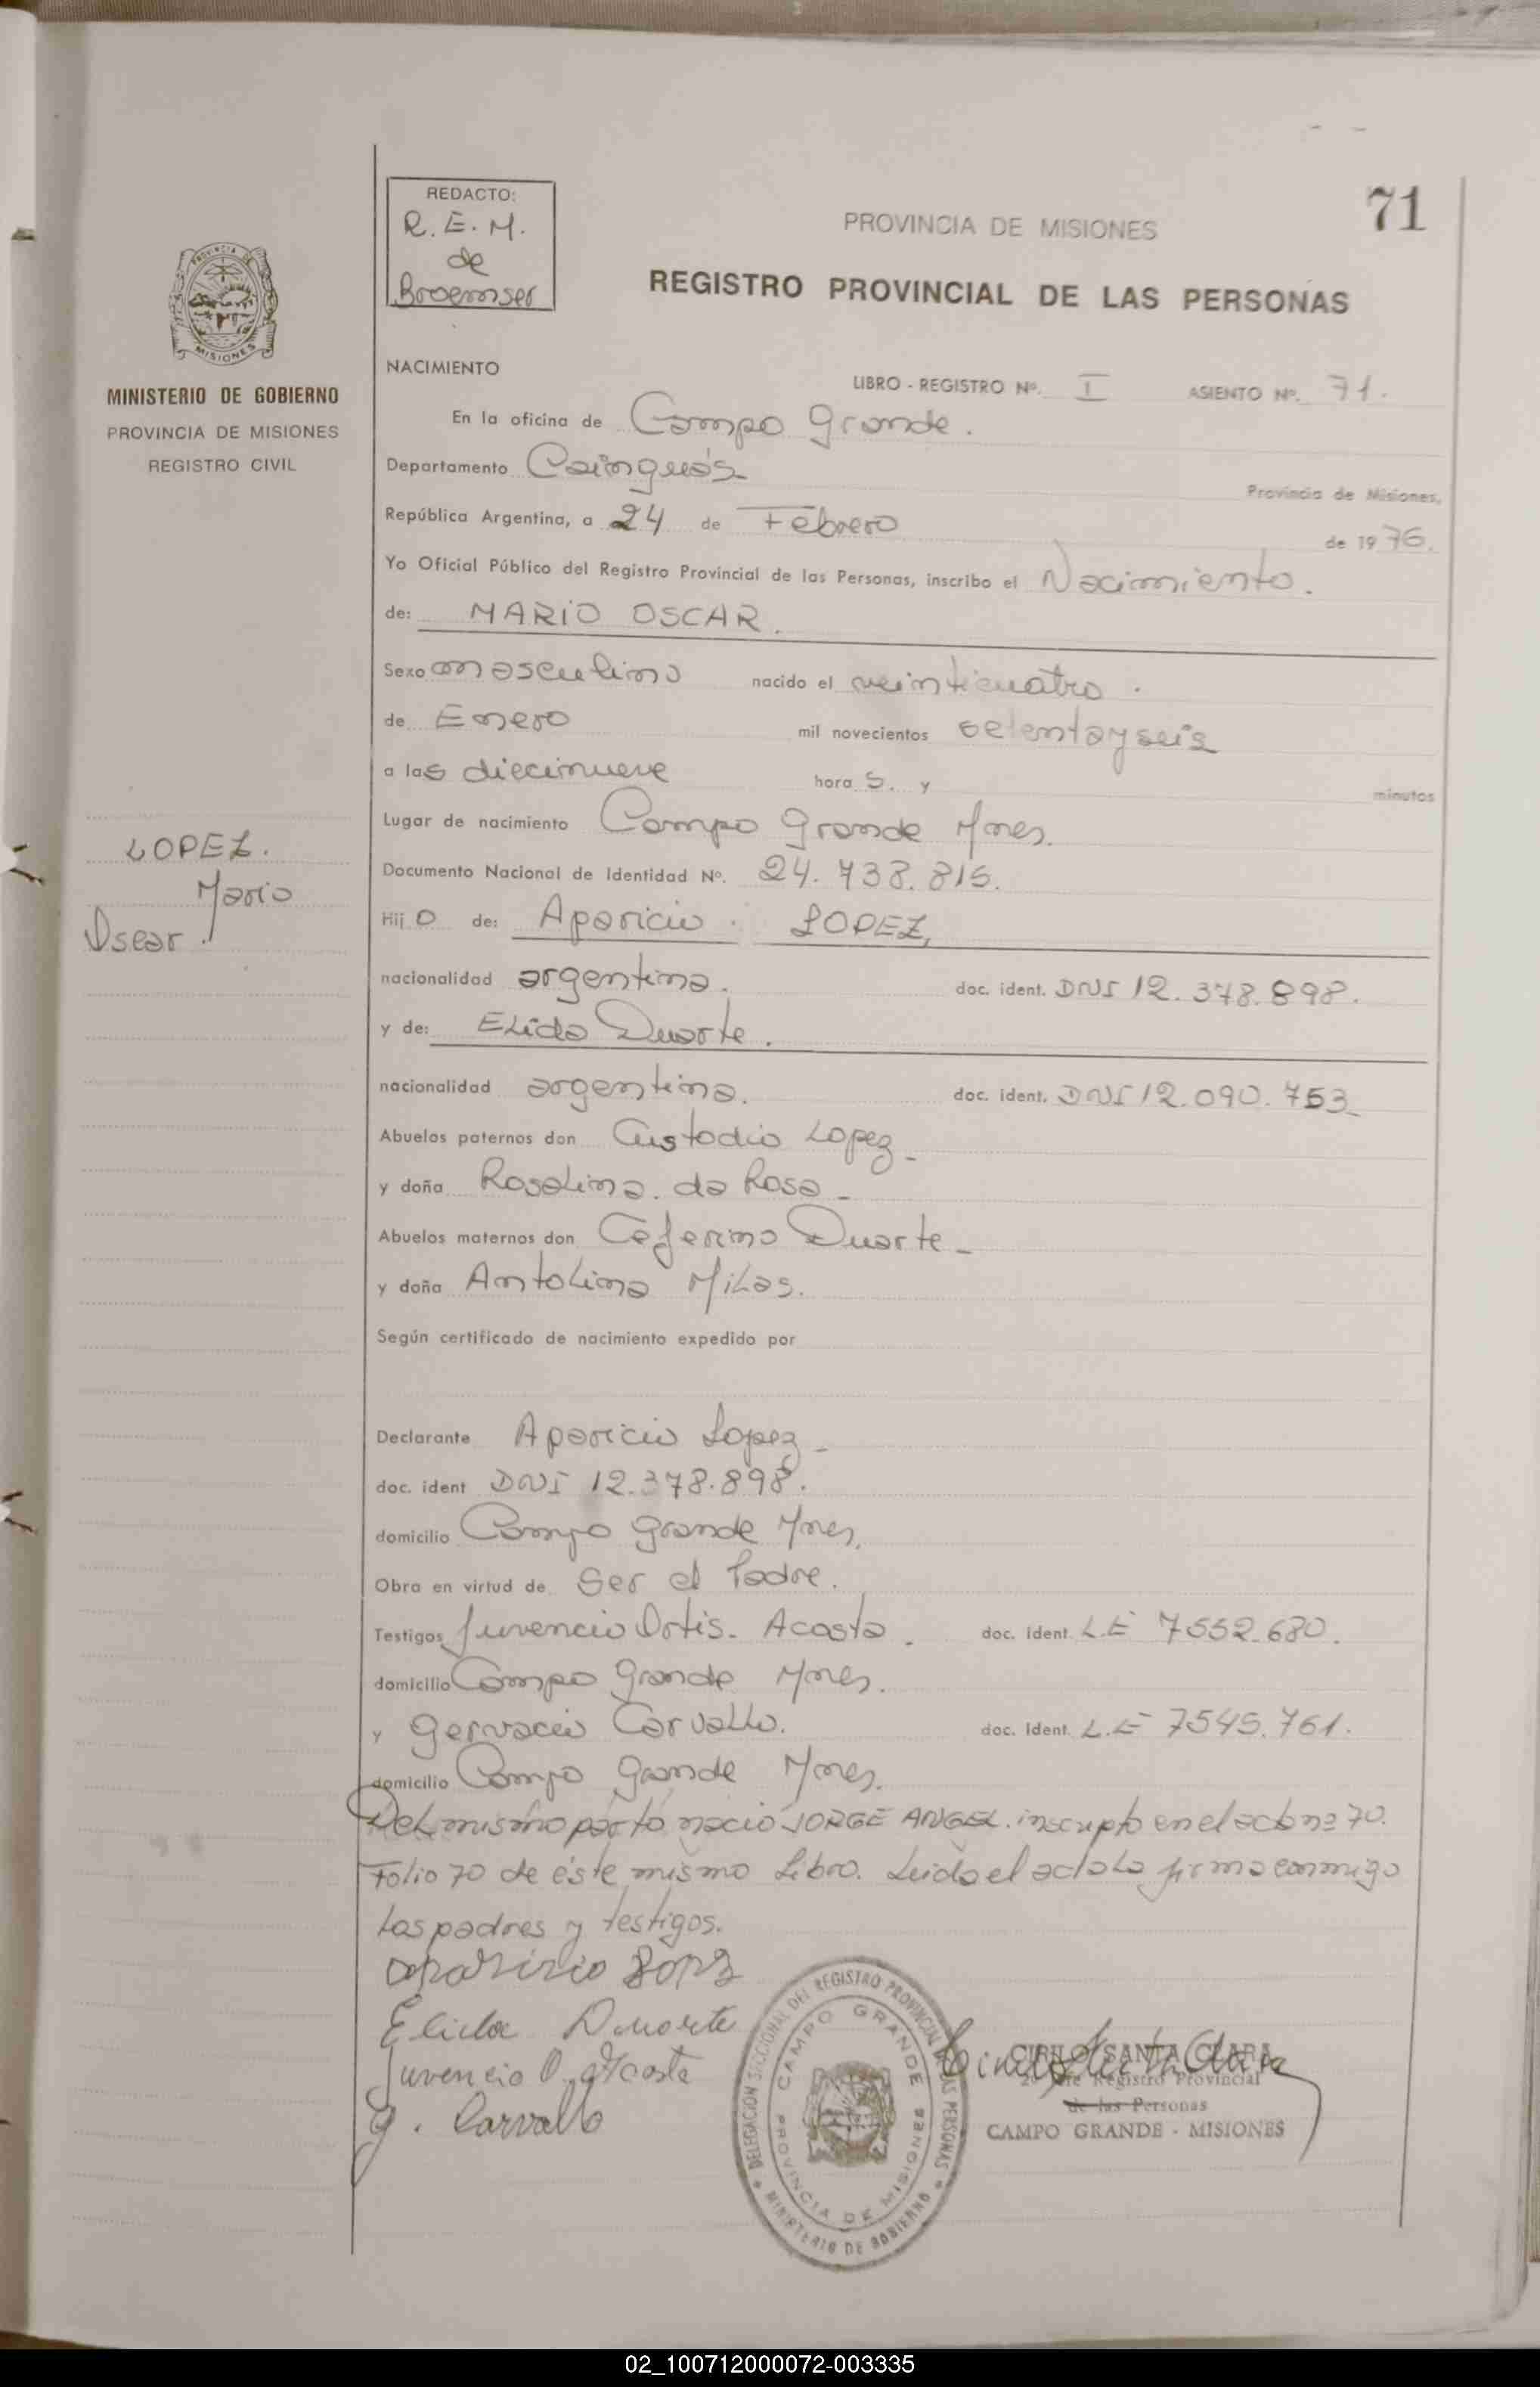 71
REDACTO:
R.E.M.
de
Broemser
PROVINCIA DE MISIONES
REGISTRO PROVINCIAL DE LAS PERSONAS
MISIONES
MINISTERIO DE GOBIERNO
PROVINCIA DE MISIONES
REGISTRO CIVIL
NACIMIENTO
LIBRO - REGISTRO Nº. I ASIENTO Nº. 71.
En la oficina de Campo Grande.
Departamento Cainguás
Provincia de Misiones,
República Argentina, a 24 de Febrero de 1976.
Yo Oficial Público del Registro Provincial de las Personas, inscribo el Nacimiento.
de: MARIO OSCAR.
Sexo masculino nacido el veinticuatro.
de Enero mil novecientos setentayseis
a las diecinueve hora s. y minutos
Lugar de nacimiento Campo Grande Mnes.
LOPEZ.
Mario
Oscar.
Documento Nacional de Identidad Nº. 24.738.815.
Hij o de: Aparicio. LOPEZ,
nacionalidad argentina. doc. ident. DNI 12.378.898.
y de: Elida Duarte.
nacionalidad argentina. doc. ident. DNI 12.090.753_
Abuelos paternos don Custodio Lopez_
y doña Rosalina. da Rosa_
Abuelos maternos don Ceferino Duarte_
y doña Antolina Milas.
Según certificado de nacimiento expedido por
Declarante Aparicio Lopez_
doc. ident DNI 12.378.898.
domicilio Campo Grande Mnes.
Obra en virtud de Ser el Padre.
Testigos Juvencio Ortis. Acosta. doc. ident. L.E 7552.680.
domicilio Campo Grande Mnes.
y Gervacio Carvallo. doc. ident. L.E 7545.761.
domicilio Campo Grande Mnes.
Del mismo parto nació JORGE ANGEL. inscripto en el acta nº 70.
Folio 70 de éste mismo Libro. Leida el acta la firma conmigo
los padres y testigos.
Aparicio Lopz
Elida Duarte
Juvencio O. Acosta
g. Carvallo
DELEGACION SECCIONAL DEL REGISTRO PROVINCIAL DE LAS PERSONAS
MINISTERIO DE GOBIERNO
CAMPO GRANDE
PROVINCIA DE MISIONES
CIRILO SANTA CLARA
Registro Provincial
de las Personas
CAMPO GRANDE - MISIONES
02_100712000072-003335